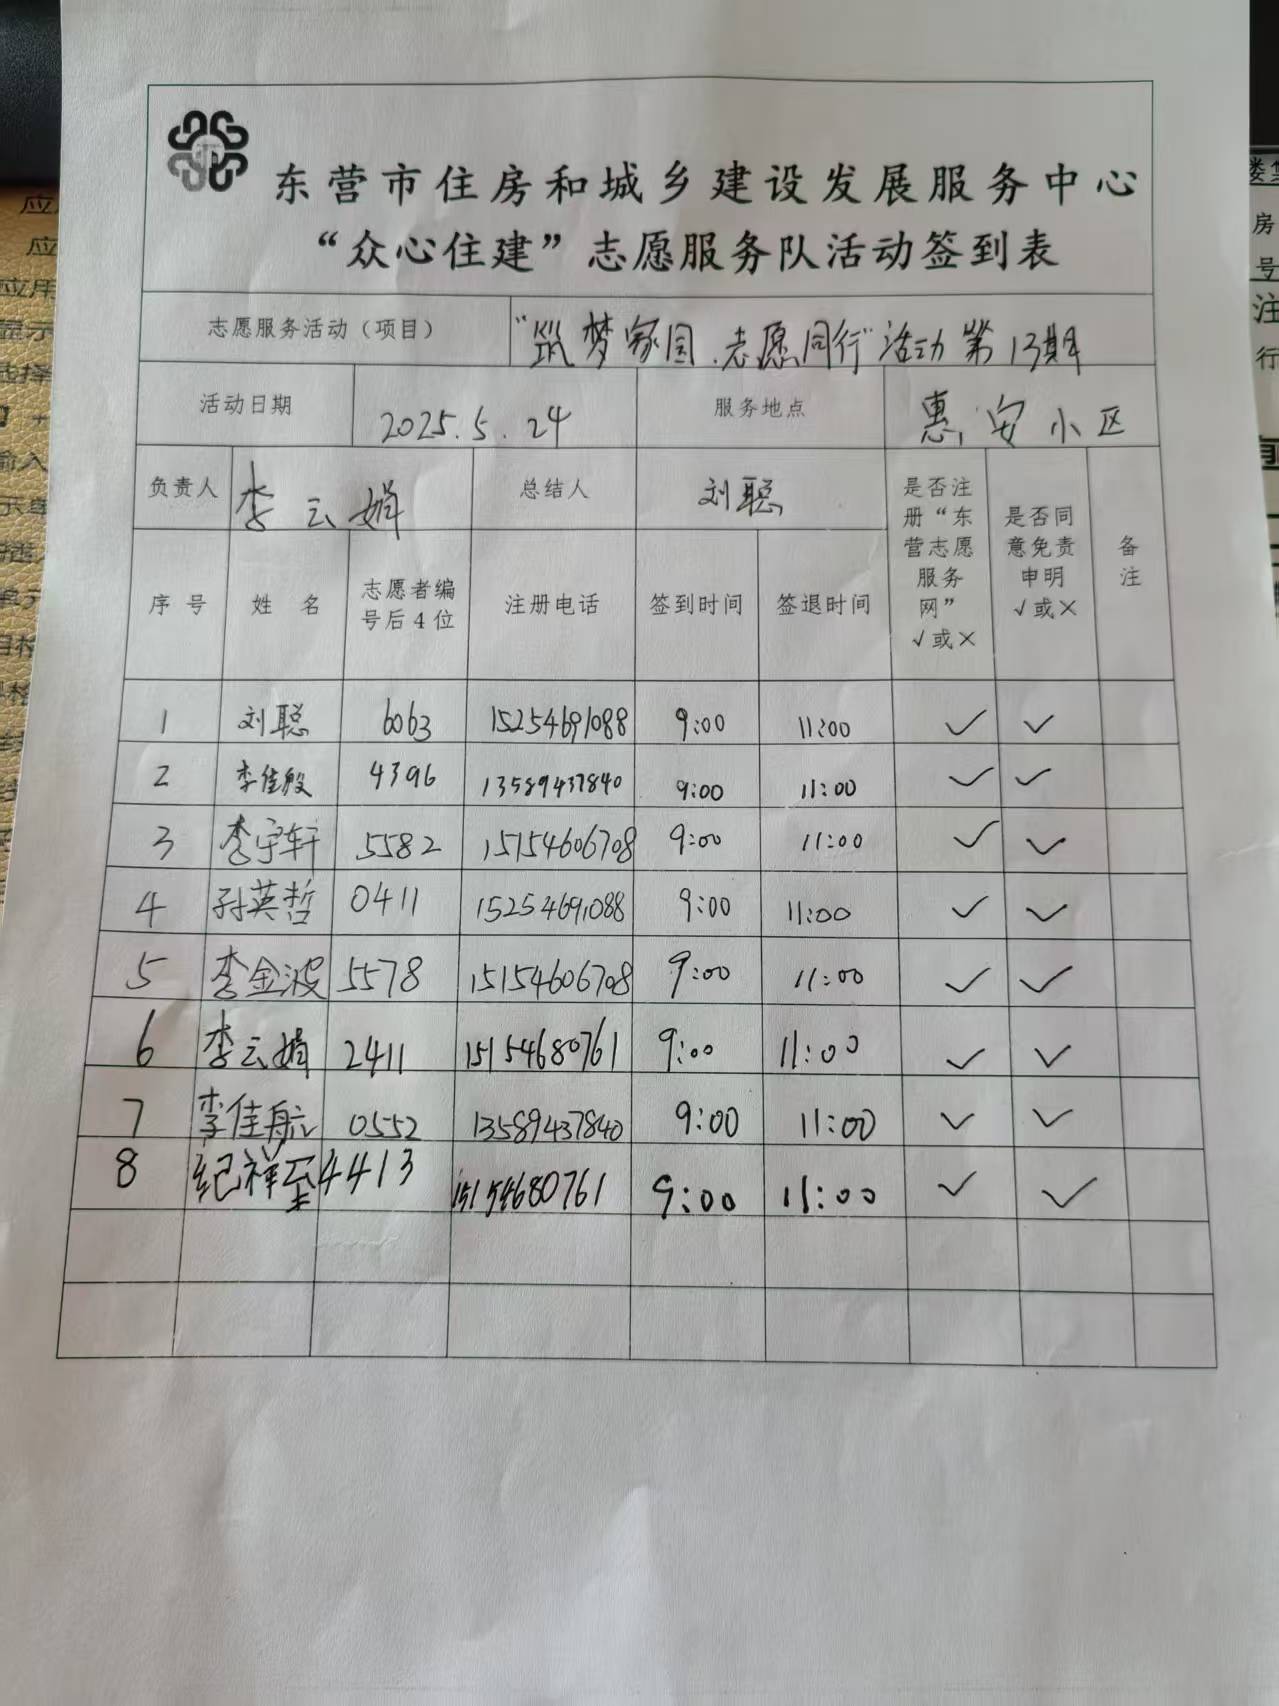 东营市住房和城乡建设发展服务中心
“众心住建”志愿服务队活动签到表
志愿服务活动（项目） “筑梦家园.志愿同行”活动第13期
活动日期 2025.5.24 服务地点 惠安小区
负责人 李云娟 总结人 刘聪 是否注册“东营志愿服务网”√或× 是否同意免责申明√或× 备注
序号 姓名 志愿者编号后4位 注册电话 签到时间 签退时间
1 刘聪 6063 15254691088 9:00 11:00 ✓ ✓
2 李佳殷 4396 13589437840 9:00 11:00 ✓ ✓
3 李宇轩 5582 15154606708 9:00 11:00 ✓ ✓
4 孙英哲 0411 15254691088 9:00 11:00 ✓ ✓
5 李金波 5578 15154606708 9:00 11:00 ✓ ✓
6 李云娟 2411 15154680761 9:00 11:00 ✓ ✓
7 李佳航 0552 13589437840 9:00 11:00 ✓ ✓
8 纪祥至 4413 15154680761 9:00 11:00 ✓ ✓